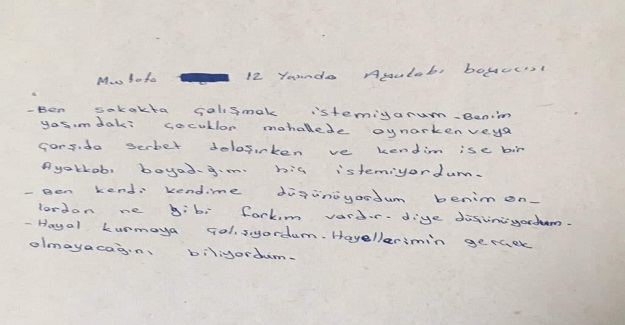 Mustafa 12 Yaşında Ayakkabı boyacısı
- Ben sokakta çalışmak istemiyorum - Benim
yaşımdaki çocuklar mahallede oynarken veya
çarşıda serbet dolaşırken ve kendim ise bir
Ayakkabı boyad-ğımı hiç istemiyordum.
- Ben kendi kendime düşünüyordum benim on_
lardan ne gibi farkım vardır. diye düşünüyordum.
- Hayal kurmaya çalışıyordum. Hayellerimin gerçek
olmayacağını biliyordum.